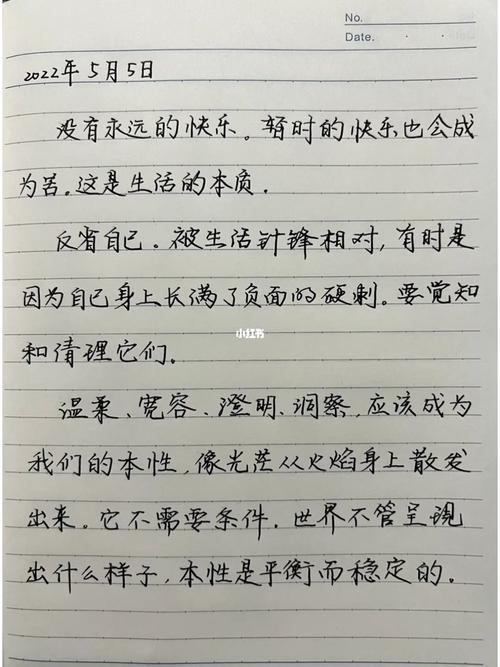 No.
Date.
2022年5月5日
没有永远的快乐。暂时的快乐也会成
为苦。这是生活的本质。
反省自己。被生活针锋相对，有时是
因为自己身上长满了负面的硬刺。要觉知
和清理它们。
小红书
温柔、宽容、澄明、洞察，应该成为
我们的本性，像光茫从火焰身上散发
出来。它不需要条件。世界不管呈现
出什么样子，本性是平衡而稳定的。